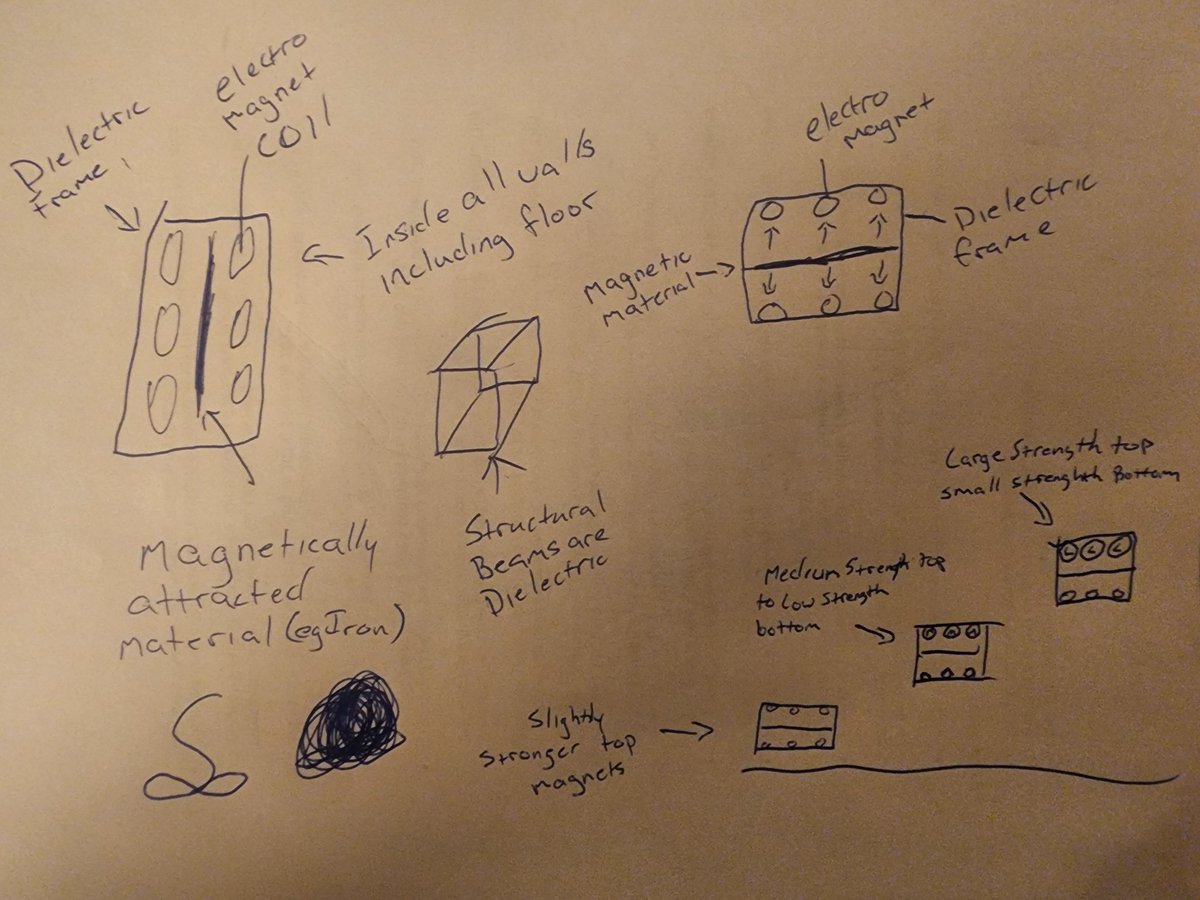 Dielectric
frame
electro
magnet
coil
Inside all walls
including floor
electro
magnet
Dielectric
frame
Magnetic
material
Structural
Beams are
Dielectric
Magnetically
attracted
material (eg Iron)
Large Strength top
small strenghth Bottom
L L L
Medium Strength top
to Low Strength
bottom
Slightly
Stronger top
magnets